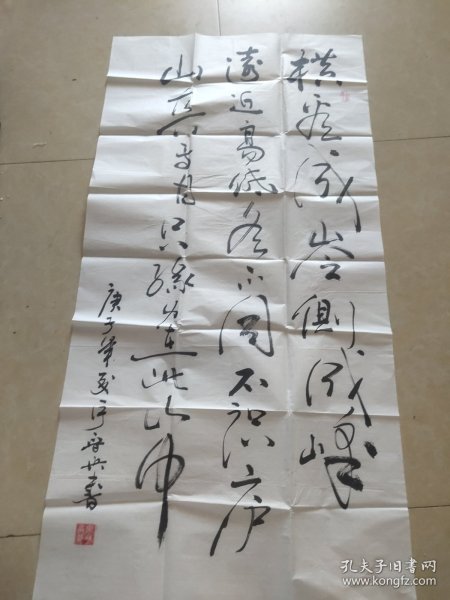 横看成岭侧成峰
远近高低各不同不识庐
山真面目只缘身在此山中
庚子年夏
书
孔夫子旧书网
www.kongfz.com